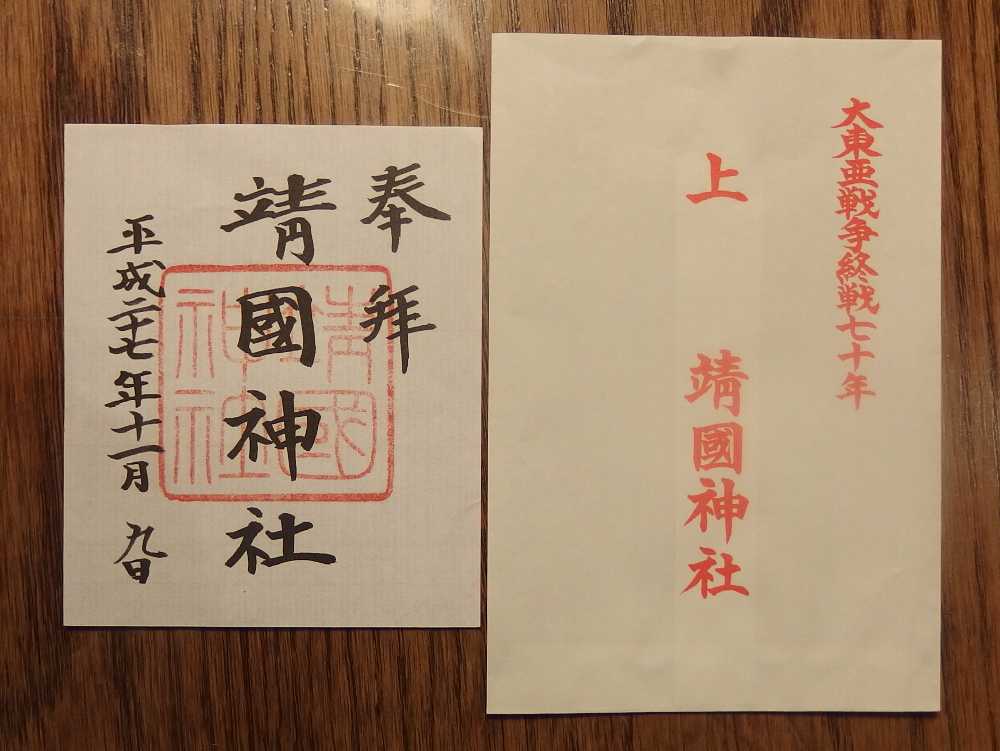 奉拝
靖國神社
平成二十七年十一月九日
靖國神社
大東亜戦争終戦七十年
上
靖國神社